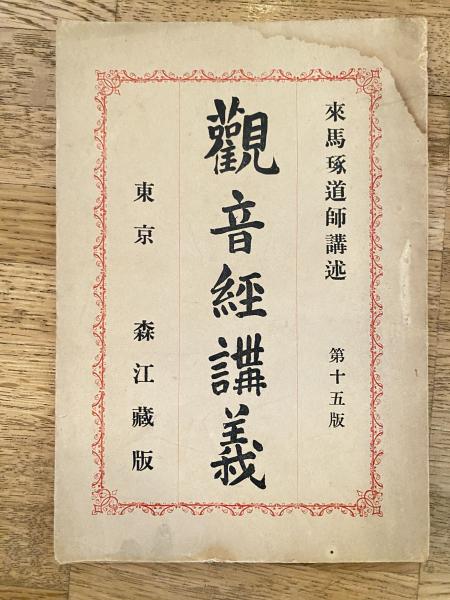 來馬琢道師講述 第十五版
觀音經講義
東京 森江藏版